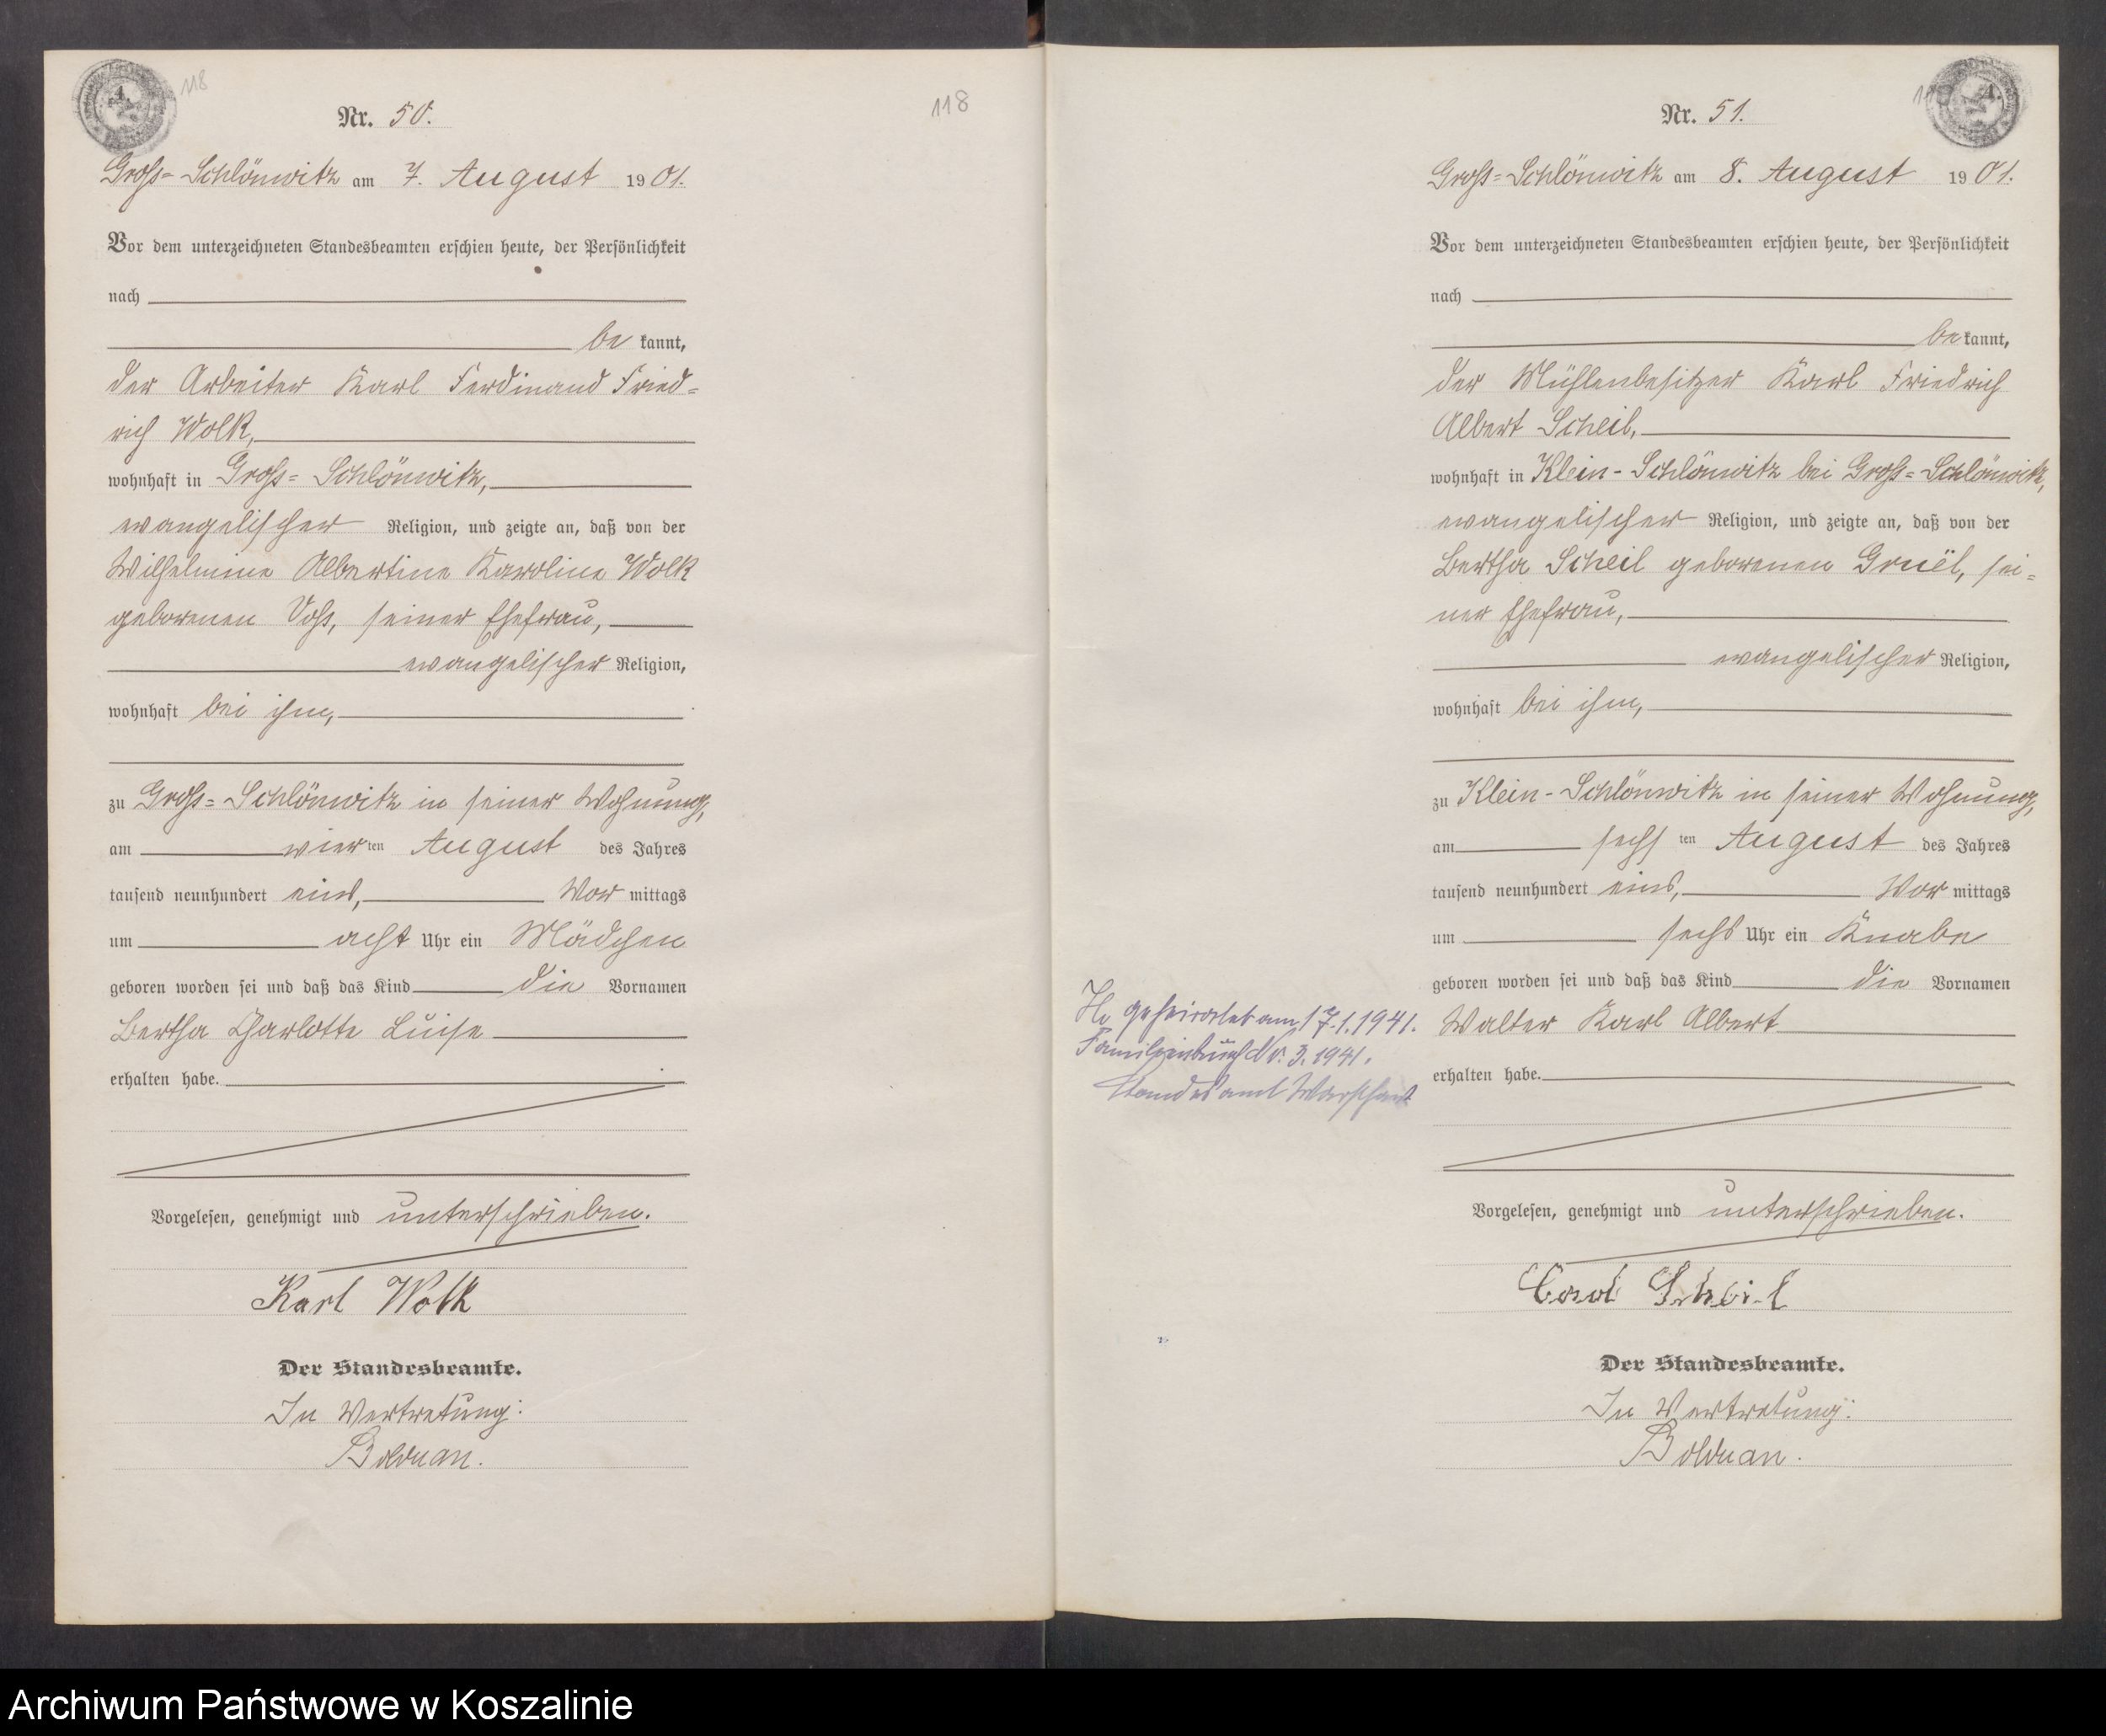 118
Nr. 50.
118
Groß-Schlönwitz am 7. August 1901.
Vor dem unterzeichneten Standesbeamten erschien heute, der Persönlichkeit
nach
be kannt,
der Arbeiter Karl Ferdinand Fried=
rich Wolk,
wohnhaft in Groß=Schlönwitz,
evangelischer Religion, und zeigte an, daß von der
Wilhelmine Albertine Karoline Wolk
geborenen Voß, seiner Ehefrau,
evangelischer Religion,
wohnhaft bei ihm,
zu Groß=Schlönwitz in seiner Wohnung,
am vier ten August des Jahres
tausend neunhundert eins, Vor mittags
um acht Uhr ein Mädchen
geboren worden sei und daß das Kind die Vornamen
Bertha Charlotte Luise
erhalten habe.
Vorgelesen, genehmigt und unterschrieben.
Karl Wolk
Der Standesbeamte.
In Vertretung:
Bolduan.
Nr. 51.
Groß=Schlönwitz am 8. August 1901.
Vor dem unterzeichneten Standesbeamten erschien heute, der Persönlichkeit
nach
be kannt,
der Mühlenbesitzer Karl Friedrich
Albert Scheil,
wohnhaft in Klein-Schlönwitz bei Groß=Schlönwitz,
evangelischer Religion, und zeigte an, daß von der
Bertha Scheil geborenen Gruël, sei=
ner Ehefrau,
evangelischer Religion,
wohnhaft bei ihm,
zu Klein-Schlönwitz in seiner Wohnung,
am sechs ten August des Jahres
tausend neunhundert eins, Vor mittags
um sechs Uhr ein Knabe
geboren worden sei und daß das Kind die Vornamen
Walter Karl Albert
erhalten habe.
geheiratet am 17.1.1941.
Familienbuch Nr. 3. 1941.
Standesamt Warschau
Vorgelesen, genehmigt und unterschrieben.
Carl Scheil
Der Standesbeamte.
In Vertretung:
Bolduan.
Archiwum Państwowe w Koszalinie